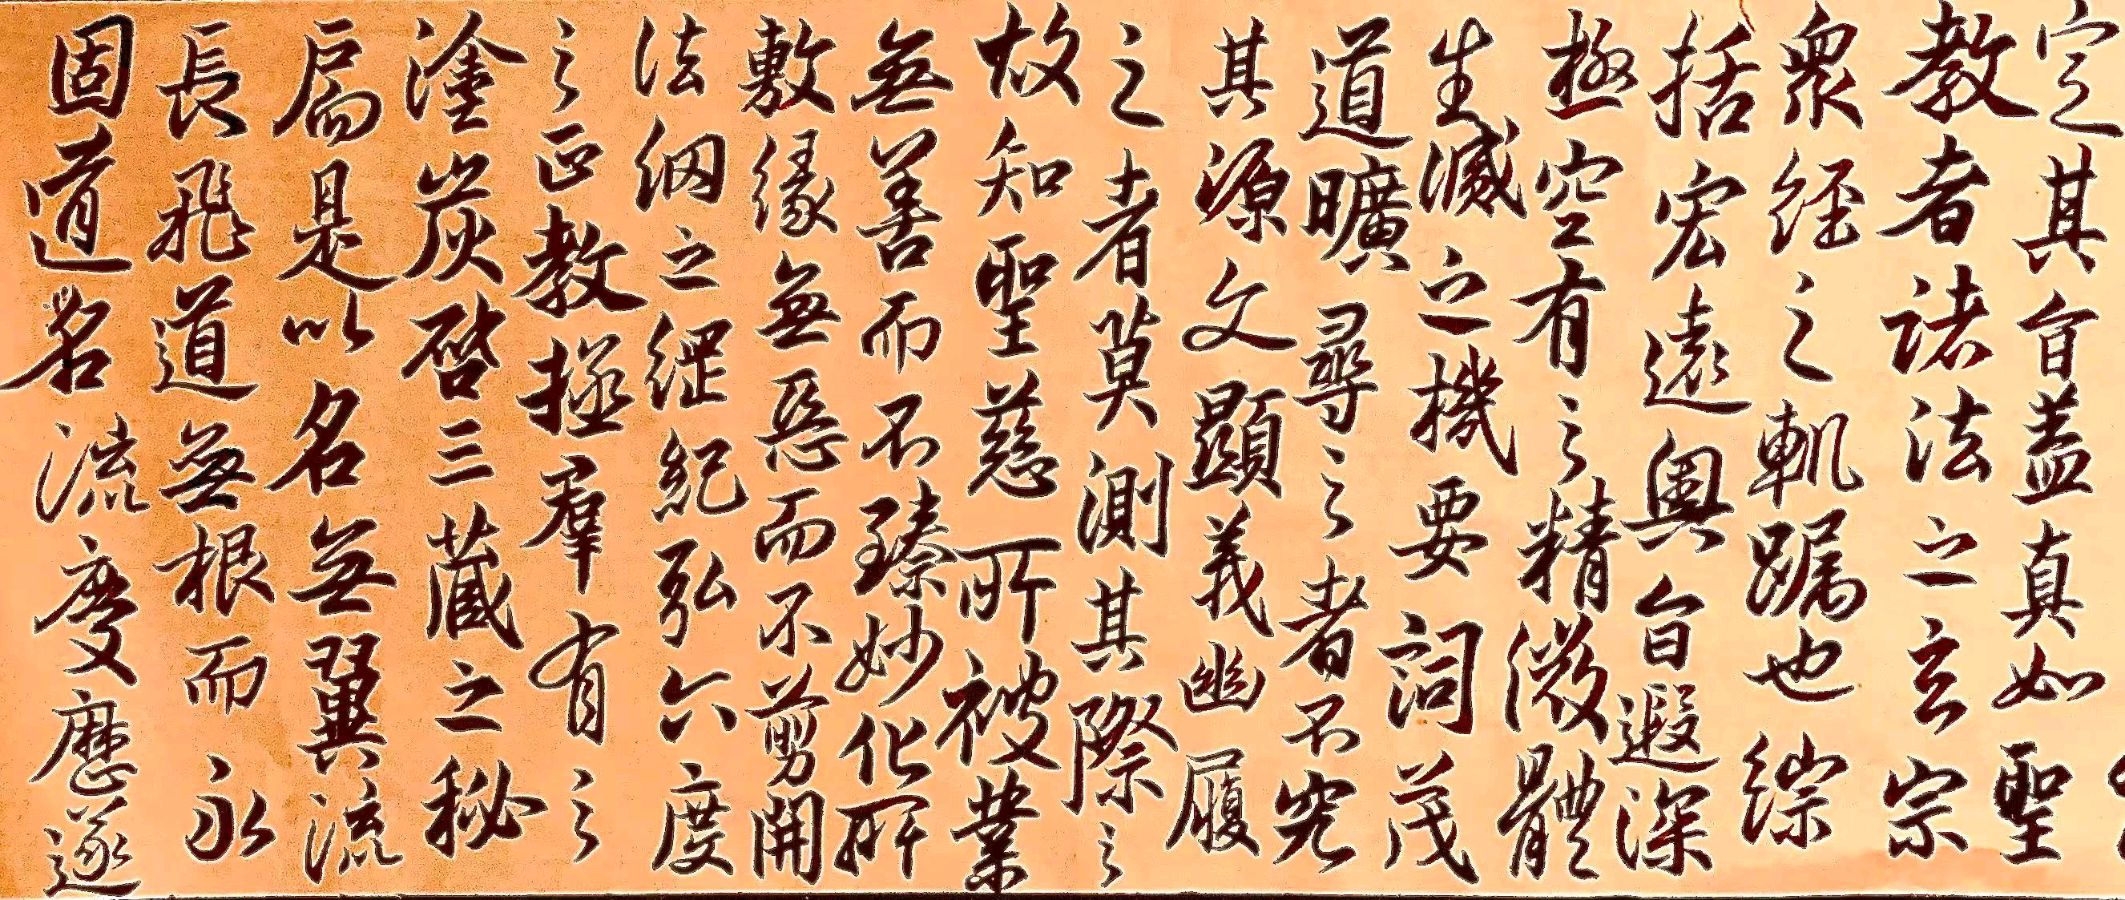 定其旨盖真如聖
教者諸法之玄宗
衆經之軌躅也綜
括宏遠奧旨遐深
極空有之精微體
生滅之機要詞茂
道曠尋之者不究
其源文顯義幽履
之者莫測其際
故知聖慈所被業
無善而不臻妙化所
敷緣無惡而不剪開
法網之綱紀弘六度
之正教拯羣有之
塗炭啓三藏之秘
扃是以名無翼流
長飛道無根而永
固道名流慶歷遂